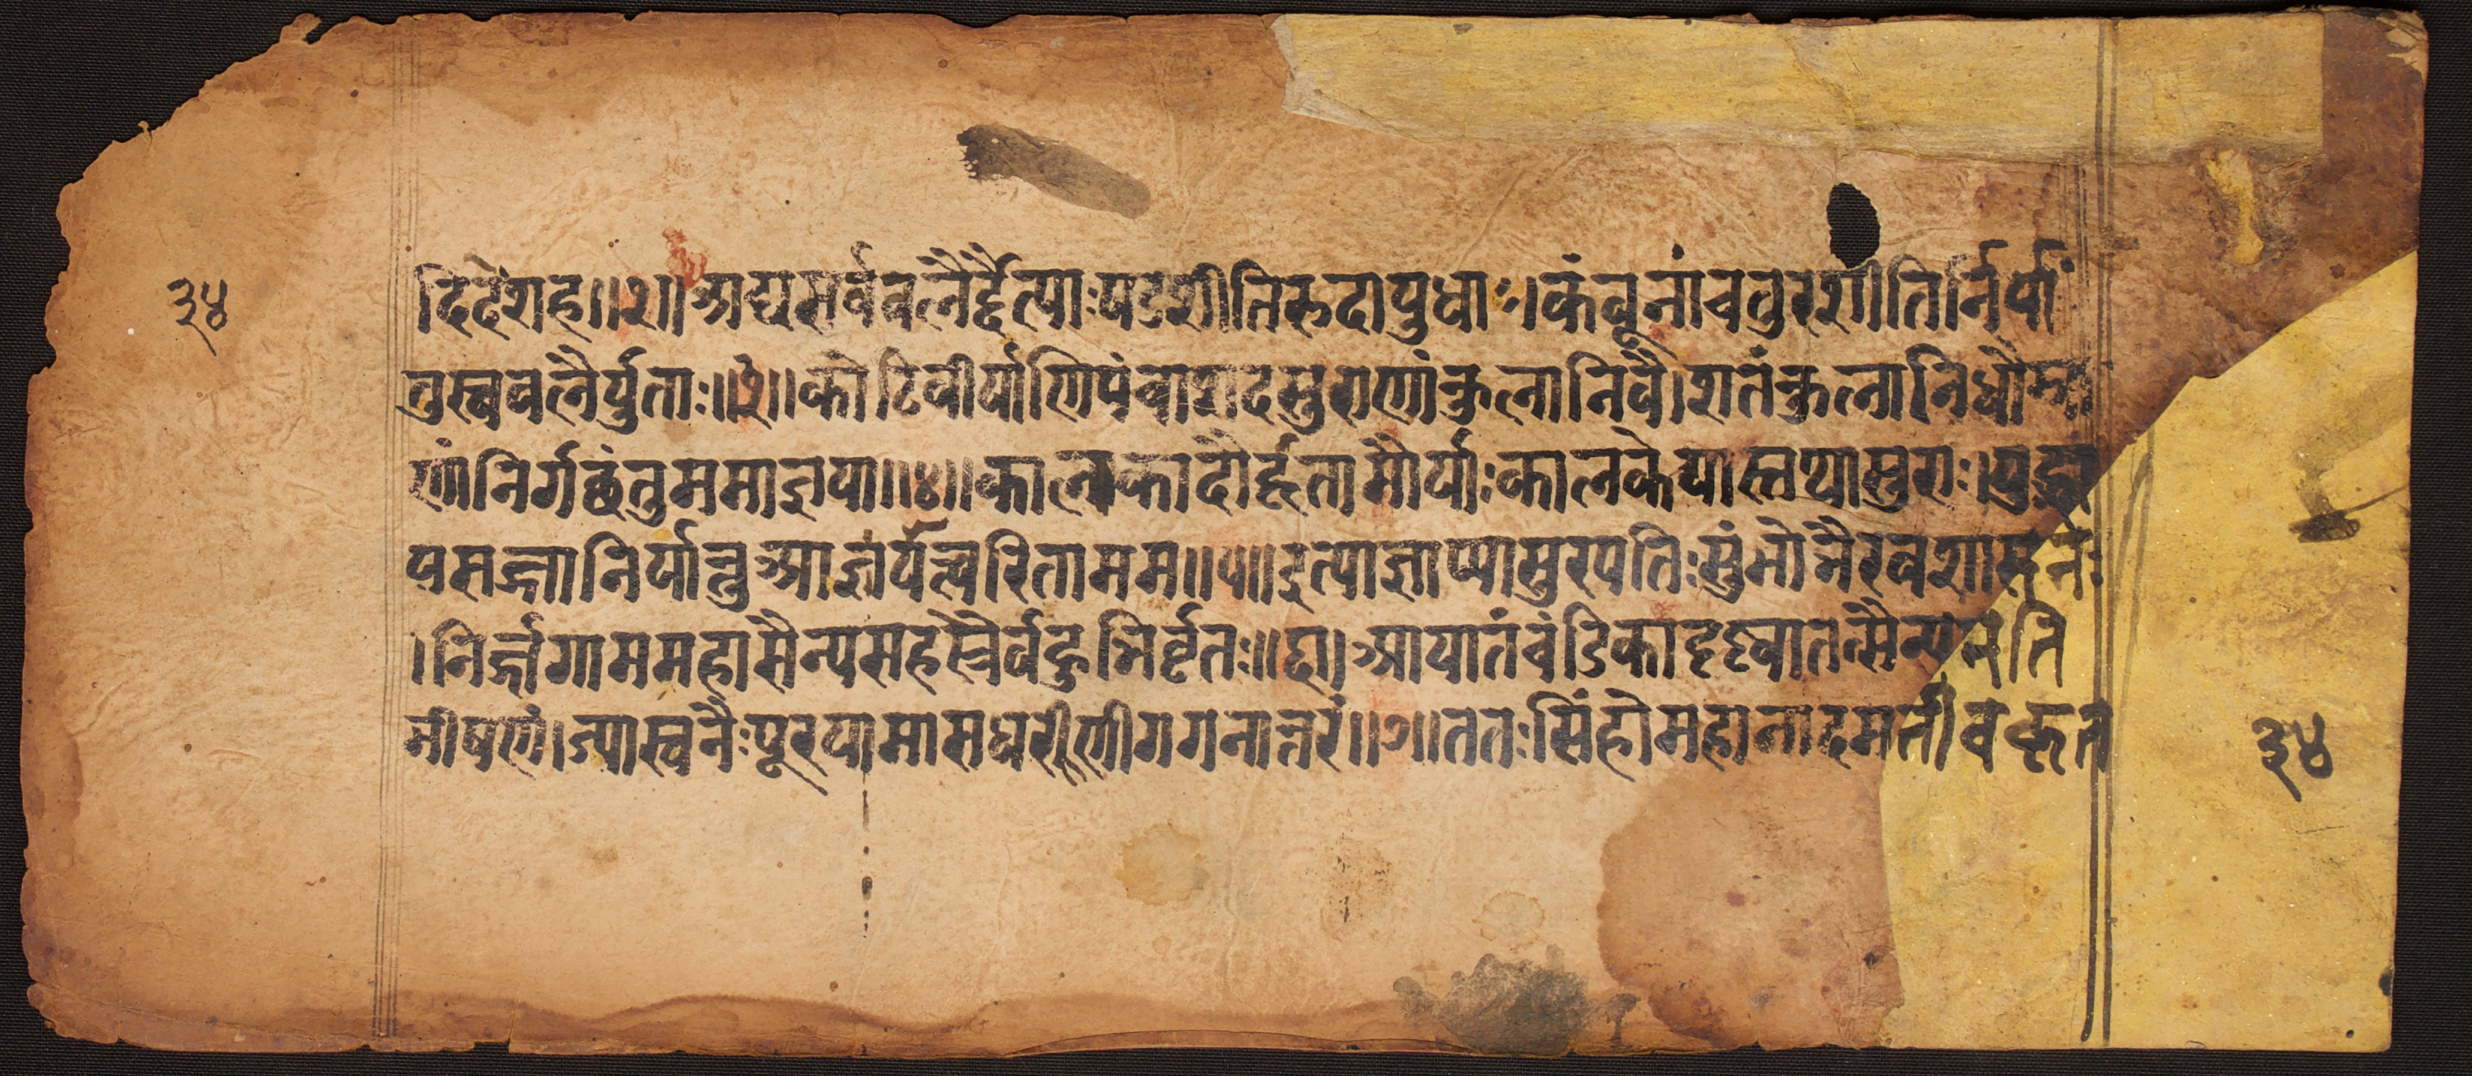 ३४
दिदेशह॥३॥अद्यसर्वबलैर्द्दैत्याःषडशीतिरुदायुधाः।कंबूनांचतुरशीतिर्निर्यां
तुस्वबलैर्युताः॥३॥कोटिवीर्याणिपंचाशदसुराणांकुलानिवै।शतंकुलानिधौम्रा
णांनिर्गछंतुममाज्ञया॥४॥कालकादौर्हृतामौर्याःकालकेयास्तथासुराः।युद्धा
यसज्जानिर्यान्तुआज्ञयात्वरितामम॥५॥इत्याज्ञाप्यासुरपतिःसुंभोभैरवशासनः
।निर्ज्जगाममहासैन्यसहस्रैर्वहुभिर्वृतः॥६॥आयातंचंडिकादृष्ट्वातत्सैन्यमति
भीषणं।ज्यास्वनैःपूरयामासधरणीगगनान्तरं॥७॥ततःसिंहोमहानादमतीवकृत
३४